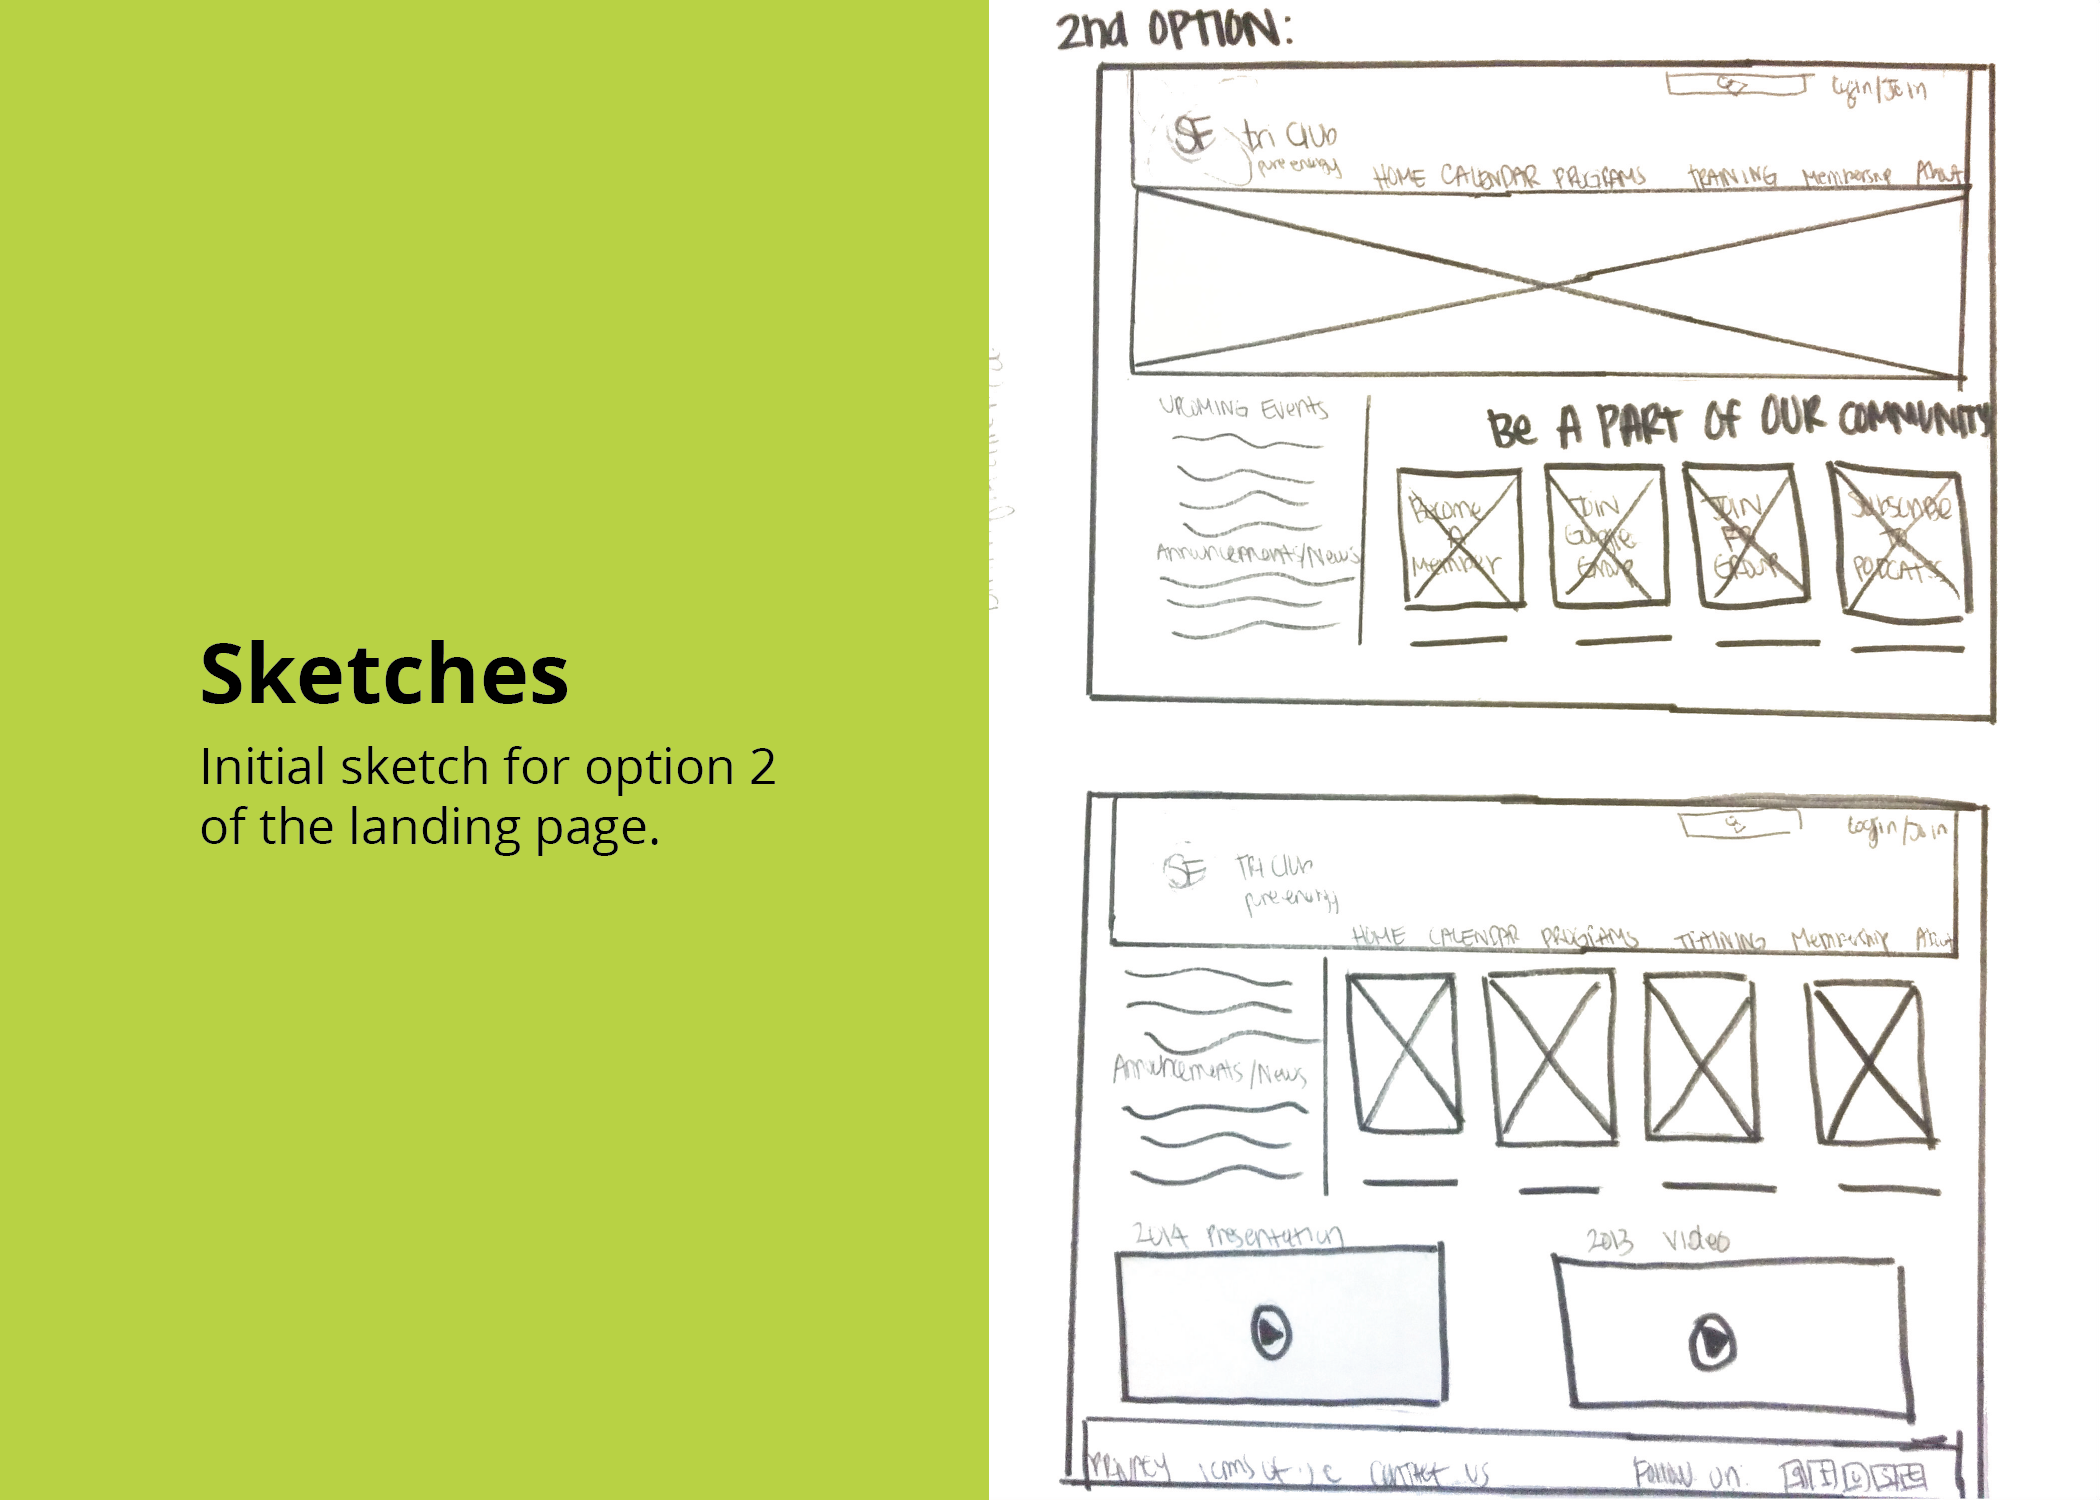 Sketches
Initial sketch for option 2
of the landing page.
2nd OPTION:
Login/Join
SF tri Club
pure energy
HOME CALENDAR PROGRAMS TRAINING Membership About
UPCOMING Events
BE A PART OF OUR COMMUNITY
Become
A
Member
JOIN
Google
Group
JOIN
FB
GROUP
SUBSCRIBE
TO
PODCATS
Announcements/News
Login/Join
SF TRI Club
pure energy
HOME CALENDAR PROGRAMS TRAINING Membership About
Announcements/News
2014 Presentation
2013 Video
PRIVACY CONTACT US
Follow on: